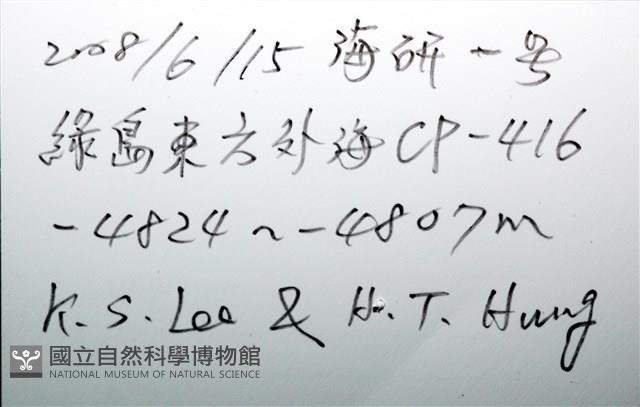 2008/6/15 海研一号
綠島東方外海 CP-416
-4824~-4807m
K.S. Lee & H.T. Hung
國立自然科學博物館
NATIONAL MUSEUM OF NATURAL SCIENCE